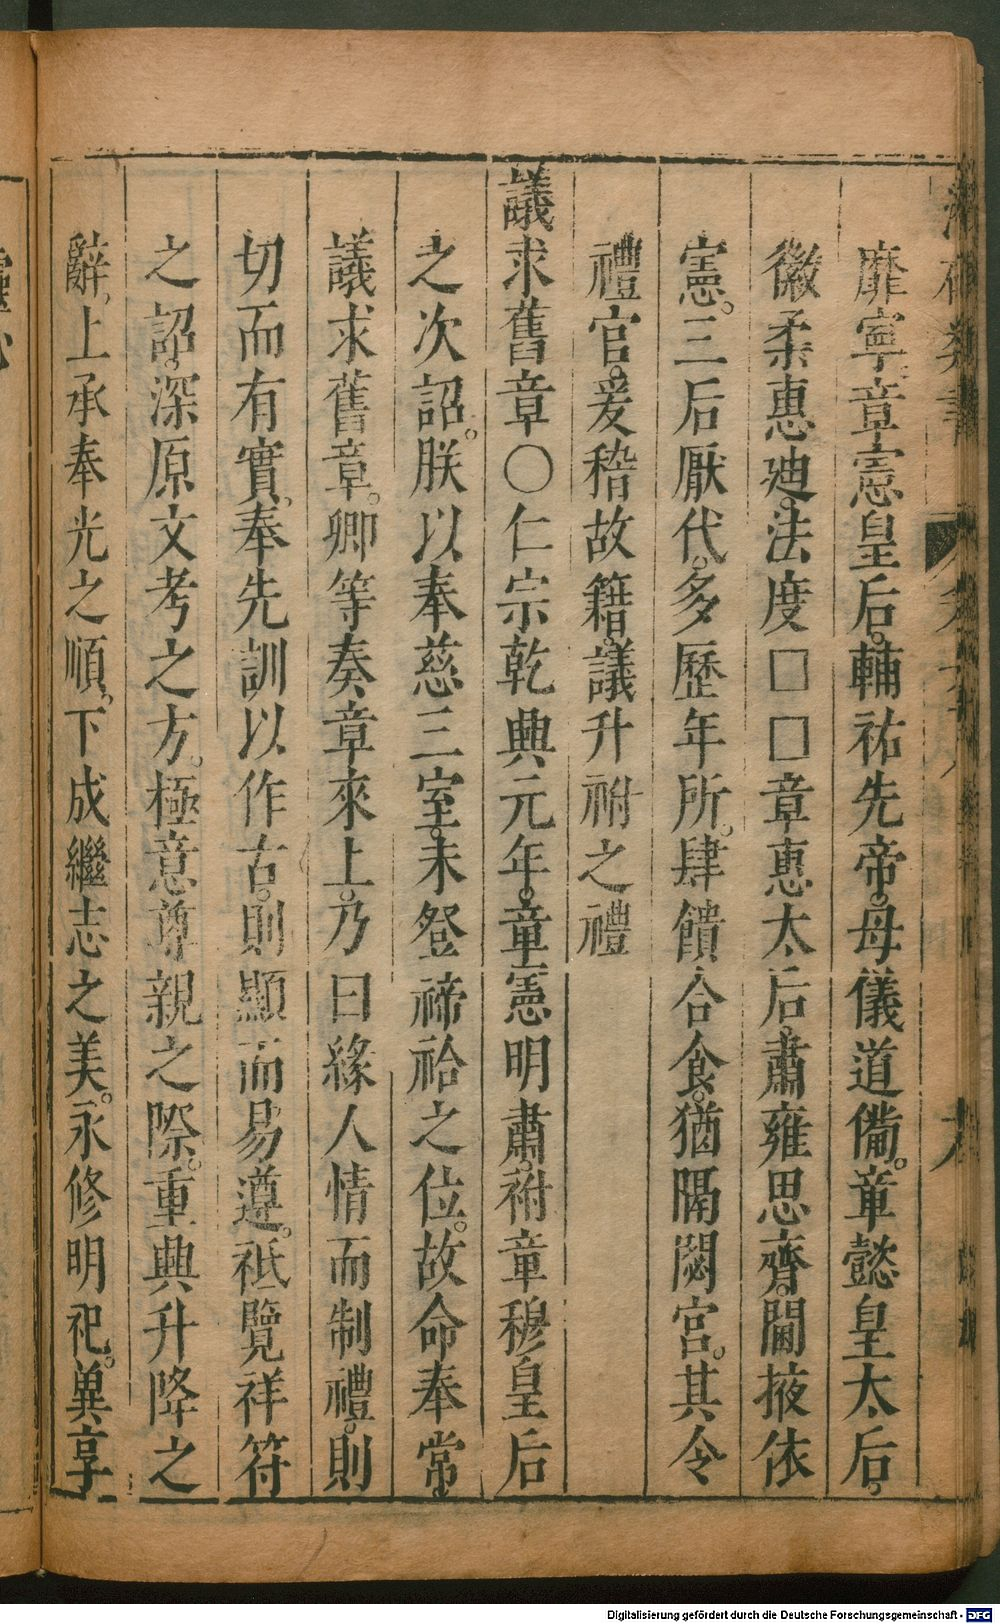 靡寧章憲皇后輔祐先帝母儀道備章懿皇太后
徽柔惠廸法度□□章惠太后肅雍思齊閫掖依
憲三后厭代多歷年所肆饋合食猶隔閟宮其令
禮官爰稽故籍議升祔之禮
議求舊章〇仁宗乾興元年章憲明肅祔章穆皇后
之次詔朕以奉慈三室未登禘祫之位故命奉常
議求舊章卿等奏章來上乃曰緣人情而制禮則
切而有實奉先訓以作古則顯而易遵祗覽祥符
之詔深原文考之方極意尊親之際重興升降之
辭上承奉光之順下成繼志之美永修明祀巽享
Digitalisierung gefördert durch die Deutsche Forschungsgemeinschaft - DFG